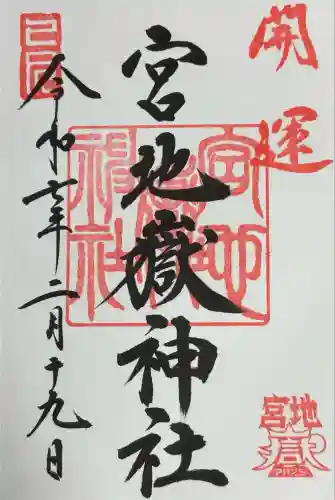 開運
宮地嶽神社
令和六年二月十九日
宮地嶽神社
宮地
嶽